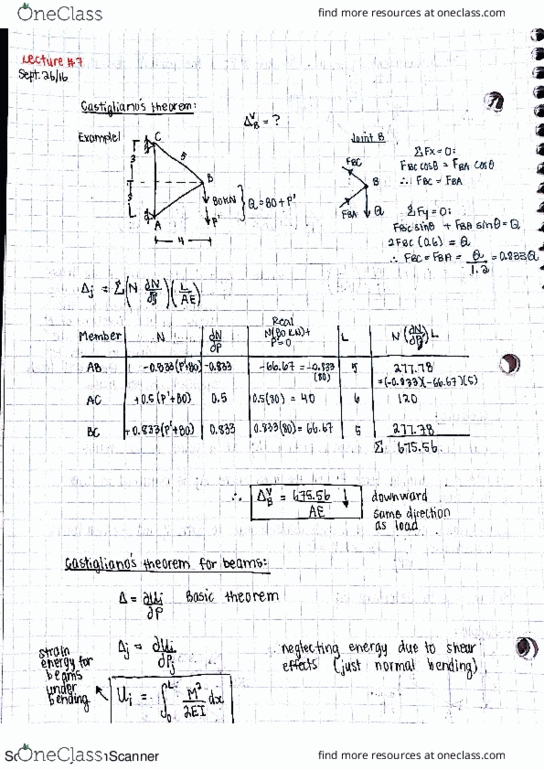 OneClass find more resources at oneclass.com
Lecture #7
Sept. 26/16
Castigliano's theorem:
Δ_B^V = ?
Example 1
C
5
B
80 kN
P'
} Q = 80 + P'
3
3
A
4
Joint B
F_BC
B
F_BA
Q
ΣFx = 0:
F_BC cosθ = F_BA cosθ
∴ F_BC = F_BA
ΣFy = 0:
F_BC sinθ + F_BA sinθ = Q
2F_BC (0.6) = Q
∴ F_BC = F_BA = Q/1.2 = 0.833Q
Δj = Σ(N ∂N/∂P)(L/AE)
Member N ∂N/∂P Real N(80 kN) + P=0 L N(∂N/∂P)L
AB -0.833(P'+80) -0.833 -66.67 = -0.833 (80) 5 277.78
=(-0.833)(-66.67)(5)
AC +0.5(P'+80) 0.5 0.5(80) = 40 6 120
BC +0.833(P'+80) 0.833 0.833(80) = 66.67 5 277.78
Σ 675.56
∴ Δ_B^V = 675.56/AE ↓ downward
same direction
as load
Castigliano's theorem for beams:
Δ = ∂Ui/∂P Basic theorem
Δj = ∂Ui/∂Pj
neglecting energy due to shear
effects (just normal bending)
strain
energy for
beams
under
bending
Ui = ∫₀ᴸ M²/2EI dx
OneClass Scanner find more resources at oneclass.com